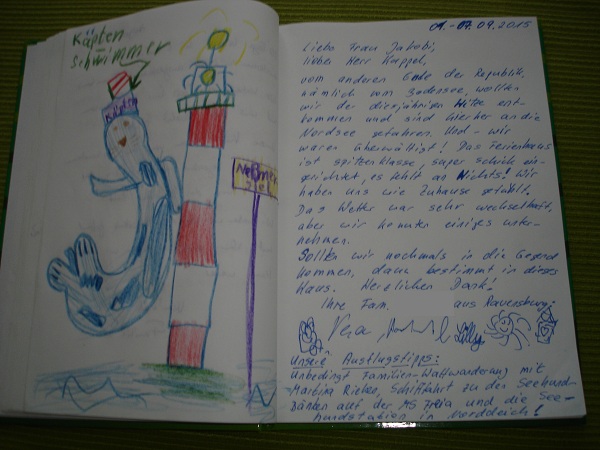 Käpten
Schwimmer
Käpten
Neßmer
01.-07.09.2015
Liebe Frau Jakobi,
lieber Herr Happel,
vom anderen Ende der Republik,
nämlich vom Bodensee, wollten
wir der diesjährigen Hitze ent-
kommen und sind hierher an die
Nordsee gefahren. Und - wir
waren überwältigt! Das Ferienhaus
ist spitzenklasse, super schick ein-
gerichtet, es fehlt an Nichts! Wir
haben uns wie Zuhause gefühlt.
Das Wetter war sehr wechselhaft,
aber wir konnten einiges unter-
nehmen.
Sollten wir nochmals in die Gegend
kommen, dann bestimmt in dieses
Haus. Herzlichen Dank!
Ihre Fam. aus Ravensburg:
Vera Lilly
Unsere Ausflugstipps:
Unbedingt Familien-Wattwanderung mit
Martina Rieken, Schifffahrt zu den Seehund-
bänken auf der MS Freia und die See-
hundstation in Norddeich!